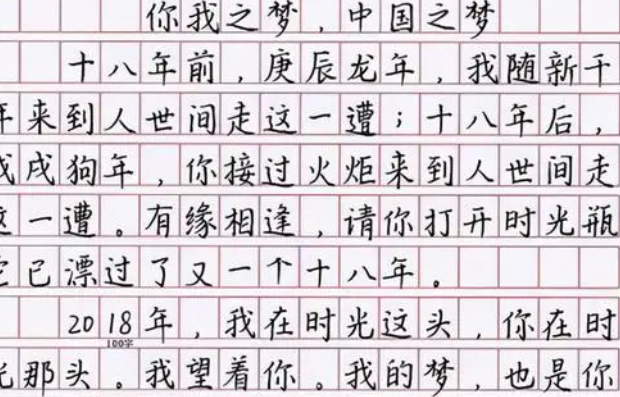 你我之梦，中国之梦
十八年前，庚辰龙年，我随新千
年来到人世间走这一遭；十八年后，
戊戌狗年，你接过火炬来到人世间走
这一遭。有缘相逢，请你打开时光瓶
它已漂过了又一个十八年。
2018年，我在时光这头，你在时
100字
光那头。我望着你。我的梦，也是你